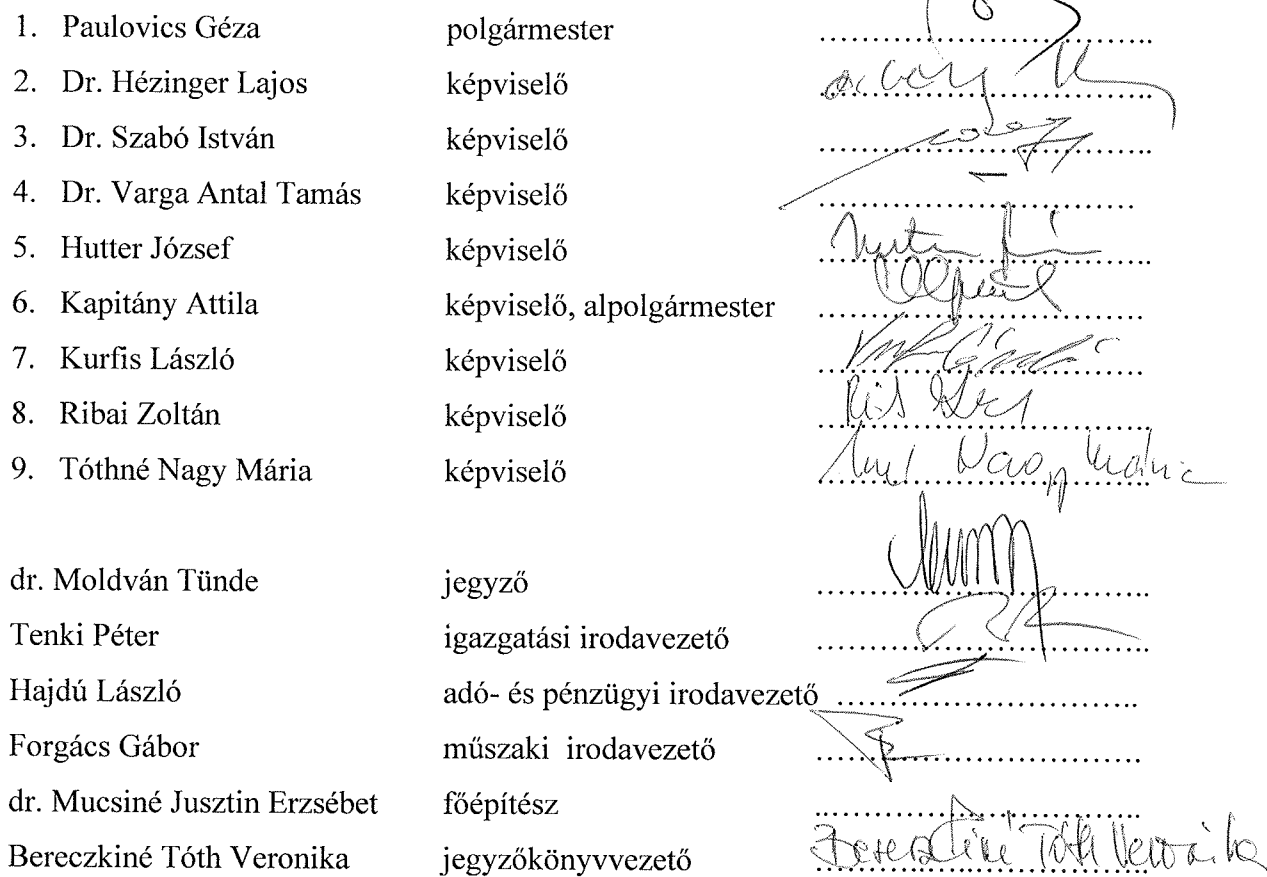 1. Paulovics Géza polgármester
2. Dr. Hézinger Lajos képviselő
3. Dr. Szabó István képviselő
4. Dr. Varga Antal Tamás képviselő
5. Hutter József képviselő
6. Kapitány Attila képviselő, alpolgármester
7. Kurfis László képviselő
8. Ribai Zoltán képviselő
9. Tóthné Nagy Mária képviselő Nagy Mária
dr. Moldván Tünde jegyző
Tenki Péter igazgatási irodavezető
Hajdú László adó- és pénzügyi irodavezető
Forgács Gábor műszaki irodavezető
dr. Mucsiné Jusztin Erzsébet főépítész
Bereczkiné Tóth Veronika jegyzőkönyvvezető Bereczkiné Tóth Veronika